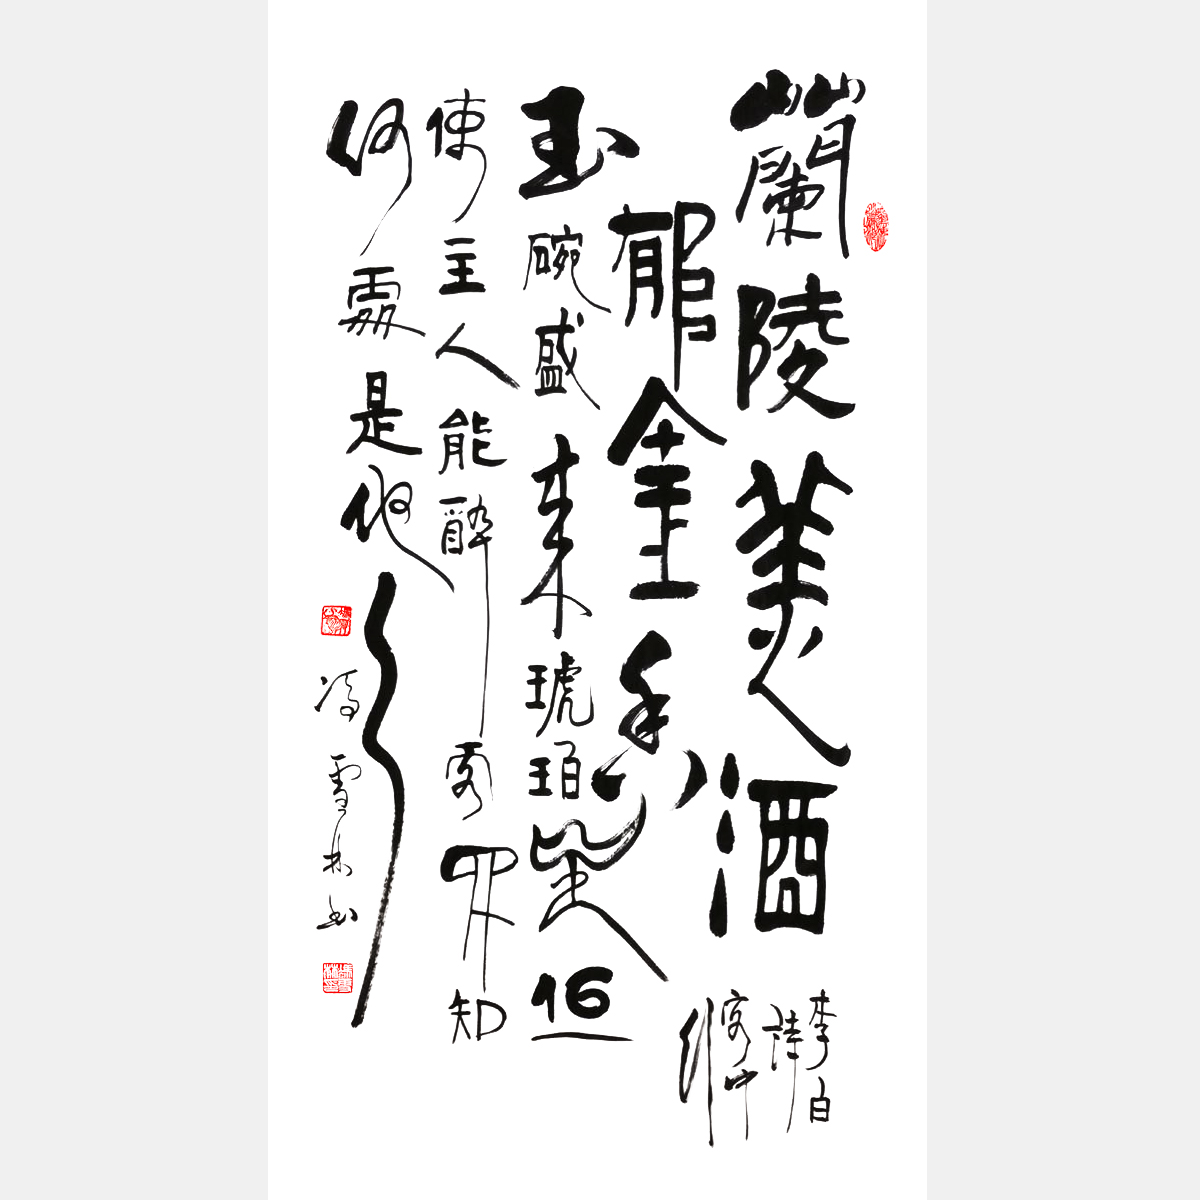 蘭陵美酒
郁金香
玉碗盛来琥珀光但
使主人能醉客不知
何處是他乡
李白
詩
客中
行
冯雪林书